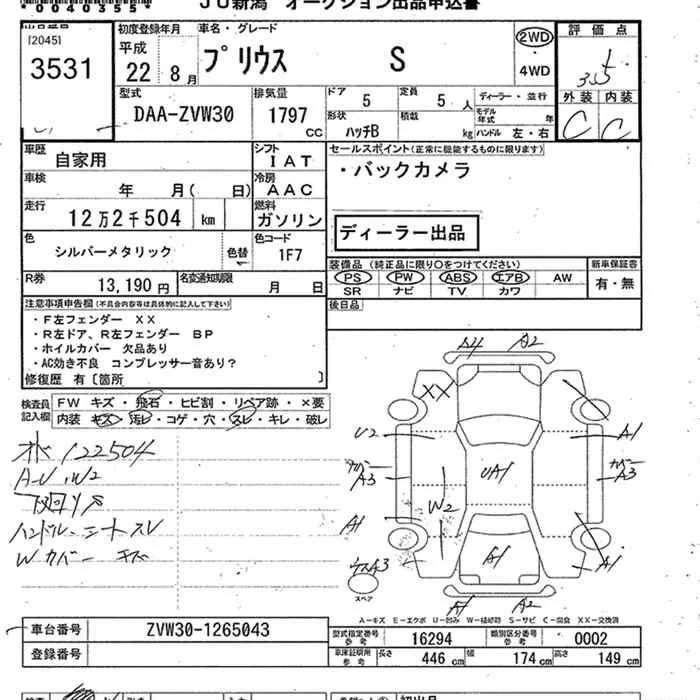 *0040355*
JU新潟 オークション出品申込書
[2045]
3531
初度登録年月
平成
22 8月
車名・グレード
プリウス S
2WD
4WD
評価点
3.5
外装 内装
C C
型式
DAA-ZVW30
排気量
1797 CC
ドア 5
定員 5人
ディーラー・並行
形状 ハッチB
積載 kg
モデル年式 年
ハンドル 左・右
車歴
自家用
シフト
IAT
セールスポイント(正常に機能するものに限ります)
・バックカメラ
車検
年 月( 日)
冷房
AAC
走行
12万2千504 km
燃料
ガソリン
ディーラー出品
色
シルバーメタリック
色替
色コード
1F7
装備品(純正品に限り○をつけてください)
新車保証書
PS PW ABS エアB AW
SR ナビ TV カワ
有・無
R券
13,190円
名変通知期限
月 日
後日品
注意事項申告欄(不具合内容等は具体的に記入して下さい)
・F左フェンダー XX
・R左ドア、R左フェンダー BP
・ホイルカバー 欠品あり
・AC効き不良 コンプレッサー音あり?
修復歴 有[箇所 ]
検査員記入欄
FW キズ・飛石・ヒビ割・リペア跡・×要
内装 キズ・汚レ・コゲ・穴・スレ・キレ・破レ
122504
A-U.W2
下回りサ
ハンドル・シートスレ
Wカバー キズ
A4 A2
XX
U2
A1
UA1
カバー A3
カバー A3
W2
A1
A1
A1
A3
スペア
A1 A2
A=キズ E=エクボ U=凹み W=補修跡 S=サビ C=腐食 XX=交換済
車台番号
ZVW30-1265043
登録番号
型式指定番号 参考
16294
類別区分番号 参考
0002
車庫証明用 参考
長さ 446cm
幅 174cm
高さ 149cm
初出品